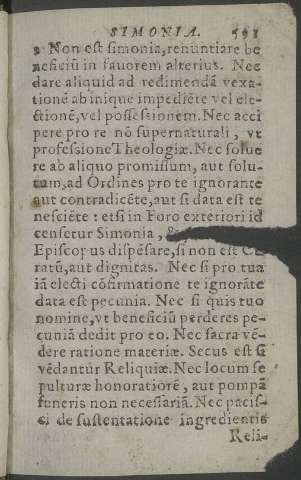 SIMONIA. 591
2 Non est simonia, renuntiare be
neficiū in fauorem alterius. Nec
dare aliquid ad redimendā vexa-
tionē ab inique impediēte vel ele-
ctionē, vel possessionem. Nec acci
pere pro re nō supernaturali, vt
professione Theologiæ. Nec solue
re ab aliquo promissum, aut solu-
tum, ad Ordines pro te ignorante
aut contradicēte, aut si data est te
nesciēte: etsi in Foro exteriori id
censetur Simonia, &
Episcopus dispēsare, si non est
ratū, aut dignitas. Nec si pro tua
iā electi cōfirmatione te ignorāte
data est pecunia. Nec si quis tuo
nomine, vt beneficiū perderes pe-
cuniā dedit pro eo. Nec sacra vē-
dere ratione materiæ. Secus est si
vēdantur Reliquiæ. Nec locum se
pulturæ honoratiorē, aut pompā
funeris non necesiariā. Nec pacis-
ci de sustentatione ingredientis
Reli-